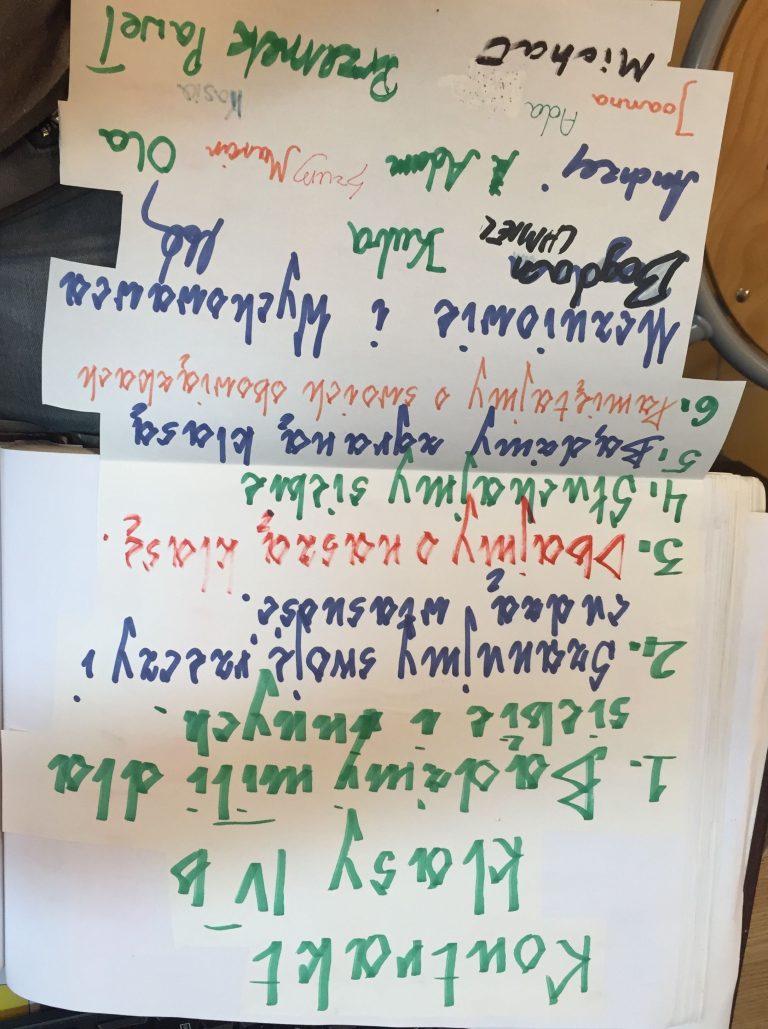 Kontrakt
klasy IV b
1. Bądźmy mili dla
siebie i innych.
2. Szanujmy swoje rzeczy i
cudzą własność.
3. Dbajmy o naszą klasę.
4. Słuchajmy siebie
5. Bądźmy zgraną klasą
6. Pamiętajmy o swoich obowiązkach
Uczniowie i Wychowawca
Bogdan CHMIEL Kuba
Andrzej Adam Marcin Ola
Joanna Ada Kasia
Michał Przemek Paweł